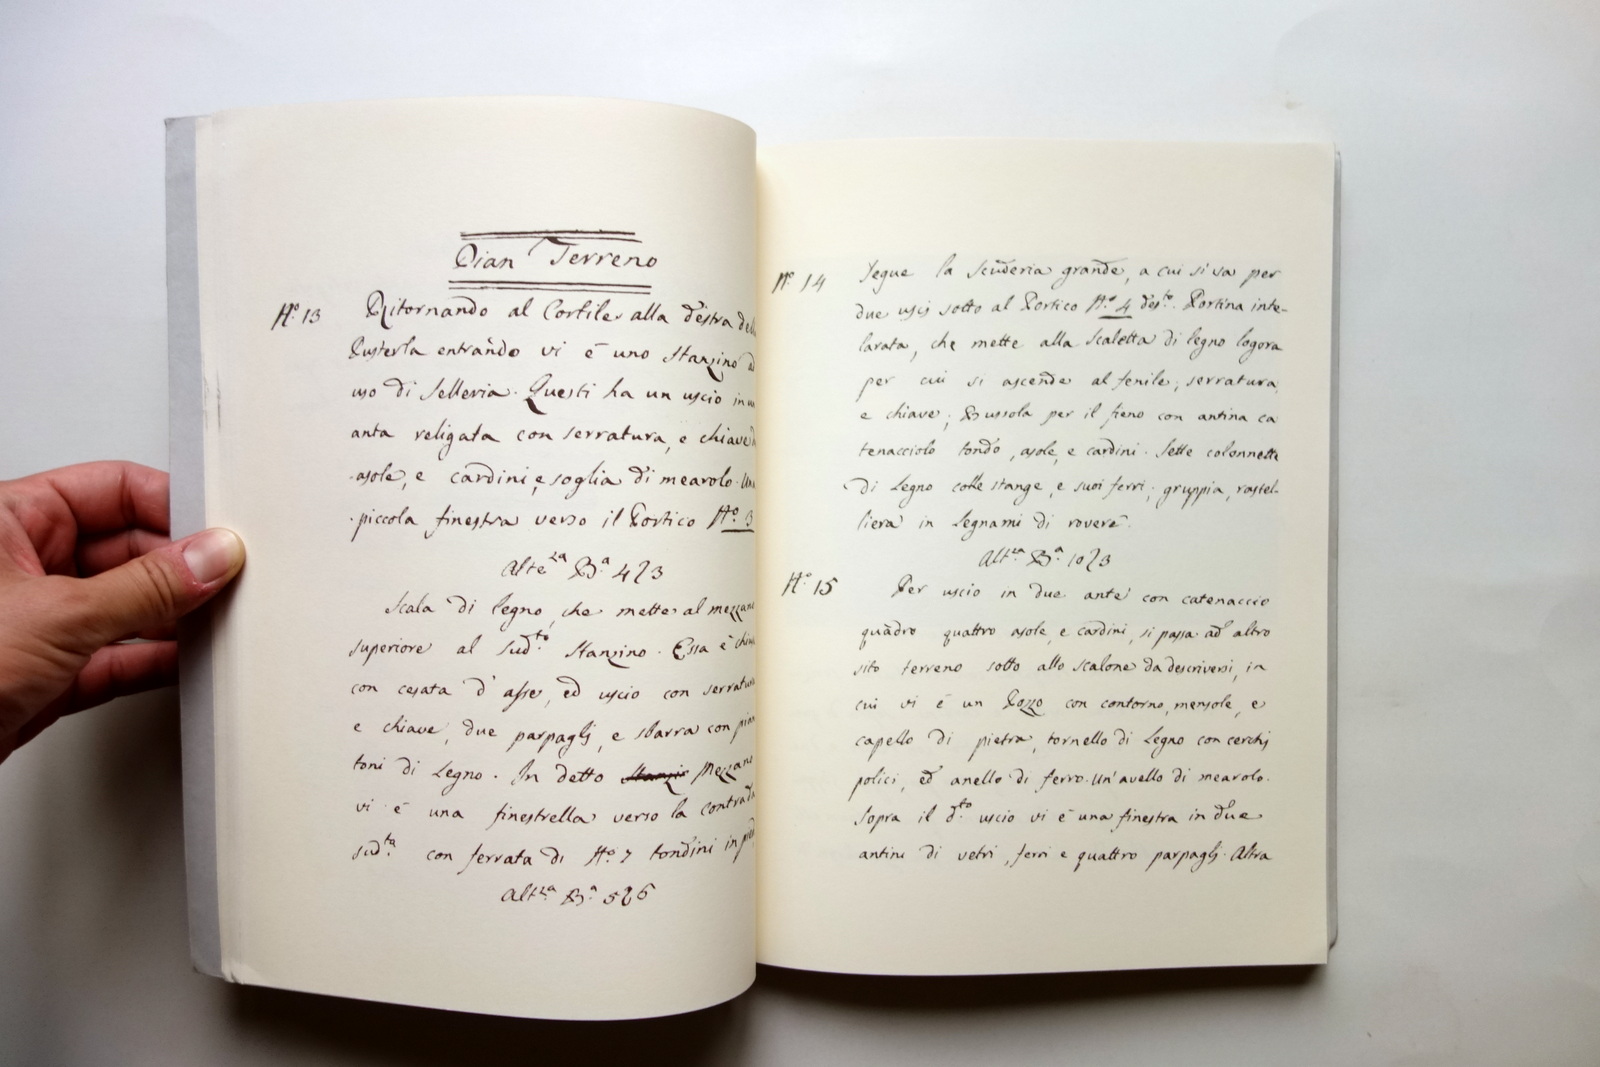 Pian Terreno
N.º 13 Ritornando al Cortile alla destra della
Pusterla entrando vi è uno Stanzino ad
uso di Selleria. Questi ha un uscio in un
anta religata con serratura, e chiave
asole, e cardini, e soglia di mearolo. Una
piccola finestra verso il Portico N.º 3
Alteza B.a 4 2 3
Scala di legno, che mette al mezzano
superiore al sud.to Stanzino. Essa è chiusa
con cesata d'asse, ed uscio con serratura
e chiave, due parpaglj, e sbarra con pian
toni di Legno. In detto Stanzio Mezzano
vi è una finestrella verso la contrada
sud.ta con ferrata di N.º 7 tondini in piedi
Alt.za B.a 5 2 6
N.º 14 Segue la Scuderia grande, a cui si va per
due uscj sotto al Portico N.º 4 des.to. Portina inte-
larata, che mette alla Scaletta di legno logora
per cui si ascende al fenile, serratura,
e chiave; Bussola per il fieno con antina ca
tenacciolo tondo, asole, e cardini. Sette colonnette
di Legno colle stange, e suoi ferri; gruppia, rastel-
liera in Legnami di rovere.
Alt.za B.a 10 2 3
N.º 15 Per uscio in due ante con catenaccio
quadro quattro asole, e cardini, si passa ad altro
sito terreno sotto allo scalone da descriversi, in
cui vi è un Pozzo con contorno, mensole, e
capello di pietra, tornello di Legno con cerchj
polici, ed anello di ferro. Un'avello di mearolo.
Sopra il d.to uscio vi è una finestra in due
antini di vetri, ferri e quattro parpaglj. Altra